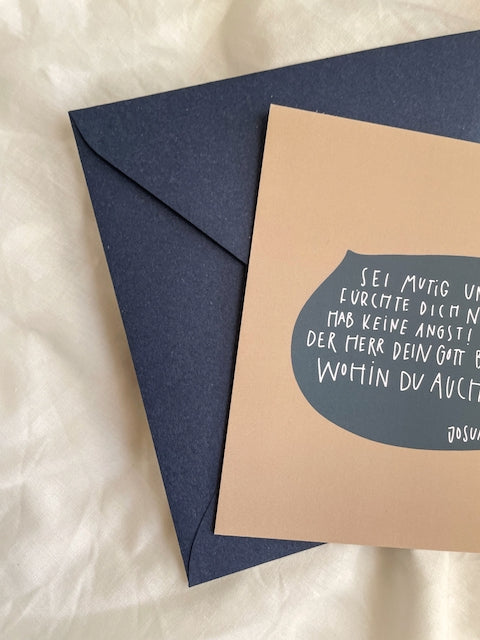 SEI MUTIG UN
FÜRCHTE DICH N
HAB KEINE ANGST!
DER HERR DEIN GOTT B
WOHIN DU AUCH
JOSUA